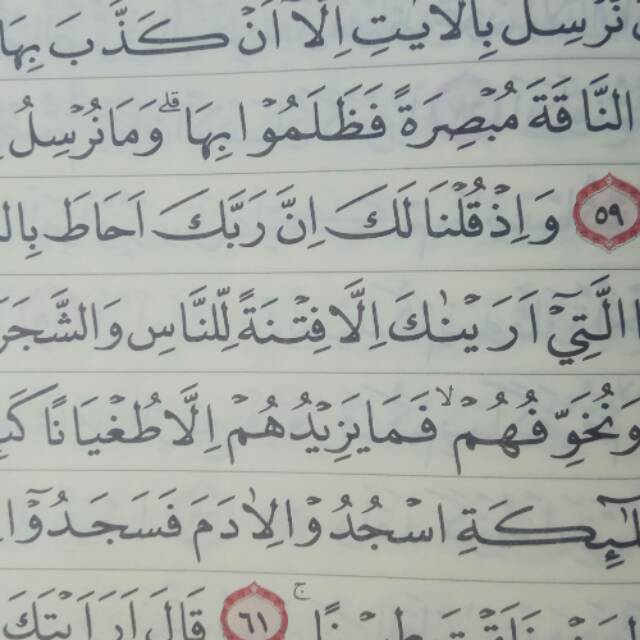 نُرْسِلَ بِالْاٰيٰتِ اِلَّآ اَنْ كَذَّبَ بِهَا
النَّاقَةَ مُبْصِرَةً فَظَلَمُوْا بِهَاۗ وَمَا نُرْسِلُ
٥٩ وَاِذْ قُلْنَا لَكَ اِنَّ رَبَّكَ اَحَاطَ
الَّتِيْٓ اَرَيْنٰكَ اِلَّا فِتْنَةً لِّلنَّاسِ وَالشَّجَرَ
وَنُخَوِّفُهُمْۙ فَمَا يَزِيْدُهُمْ اِلَّا طُغْيَانًا
اسْجُدُوْا لِاٰدَمَ فَسَجَدُوْٓا
٦١ قَالَ اَرَاَيْتَكَ